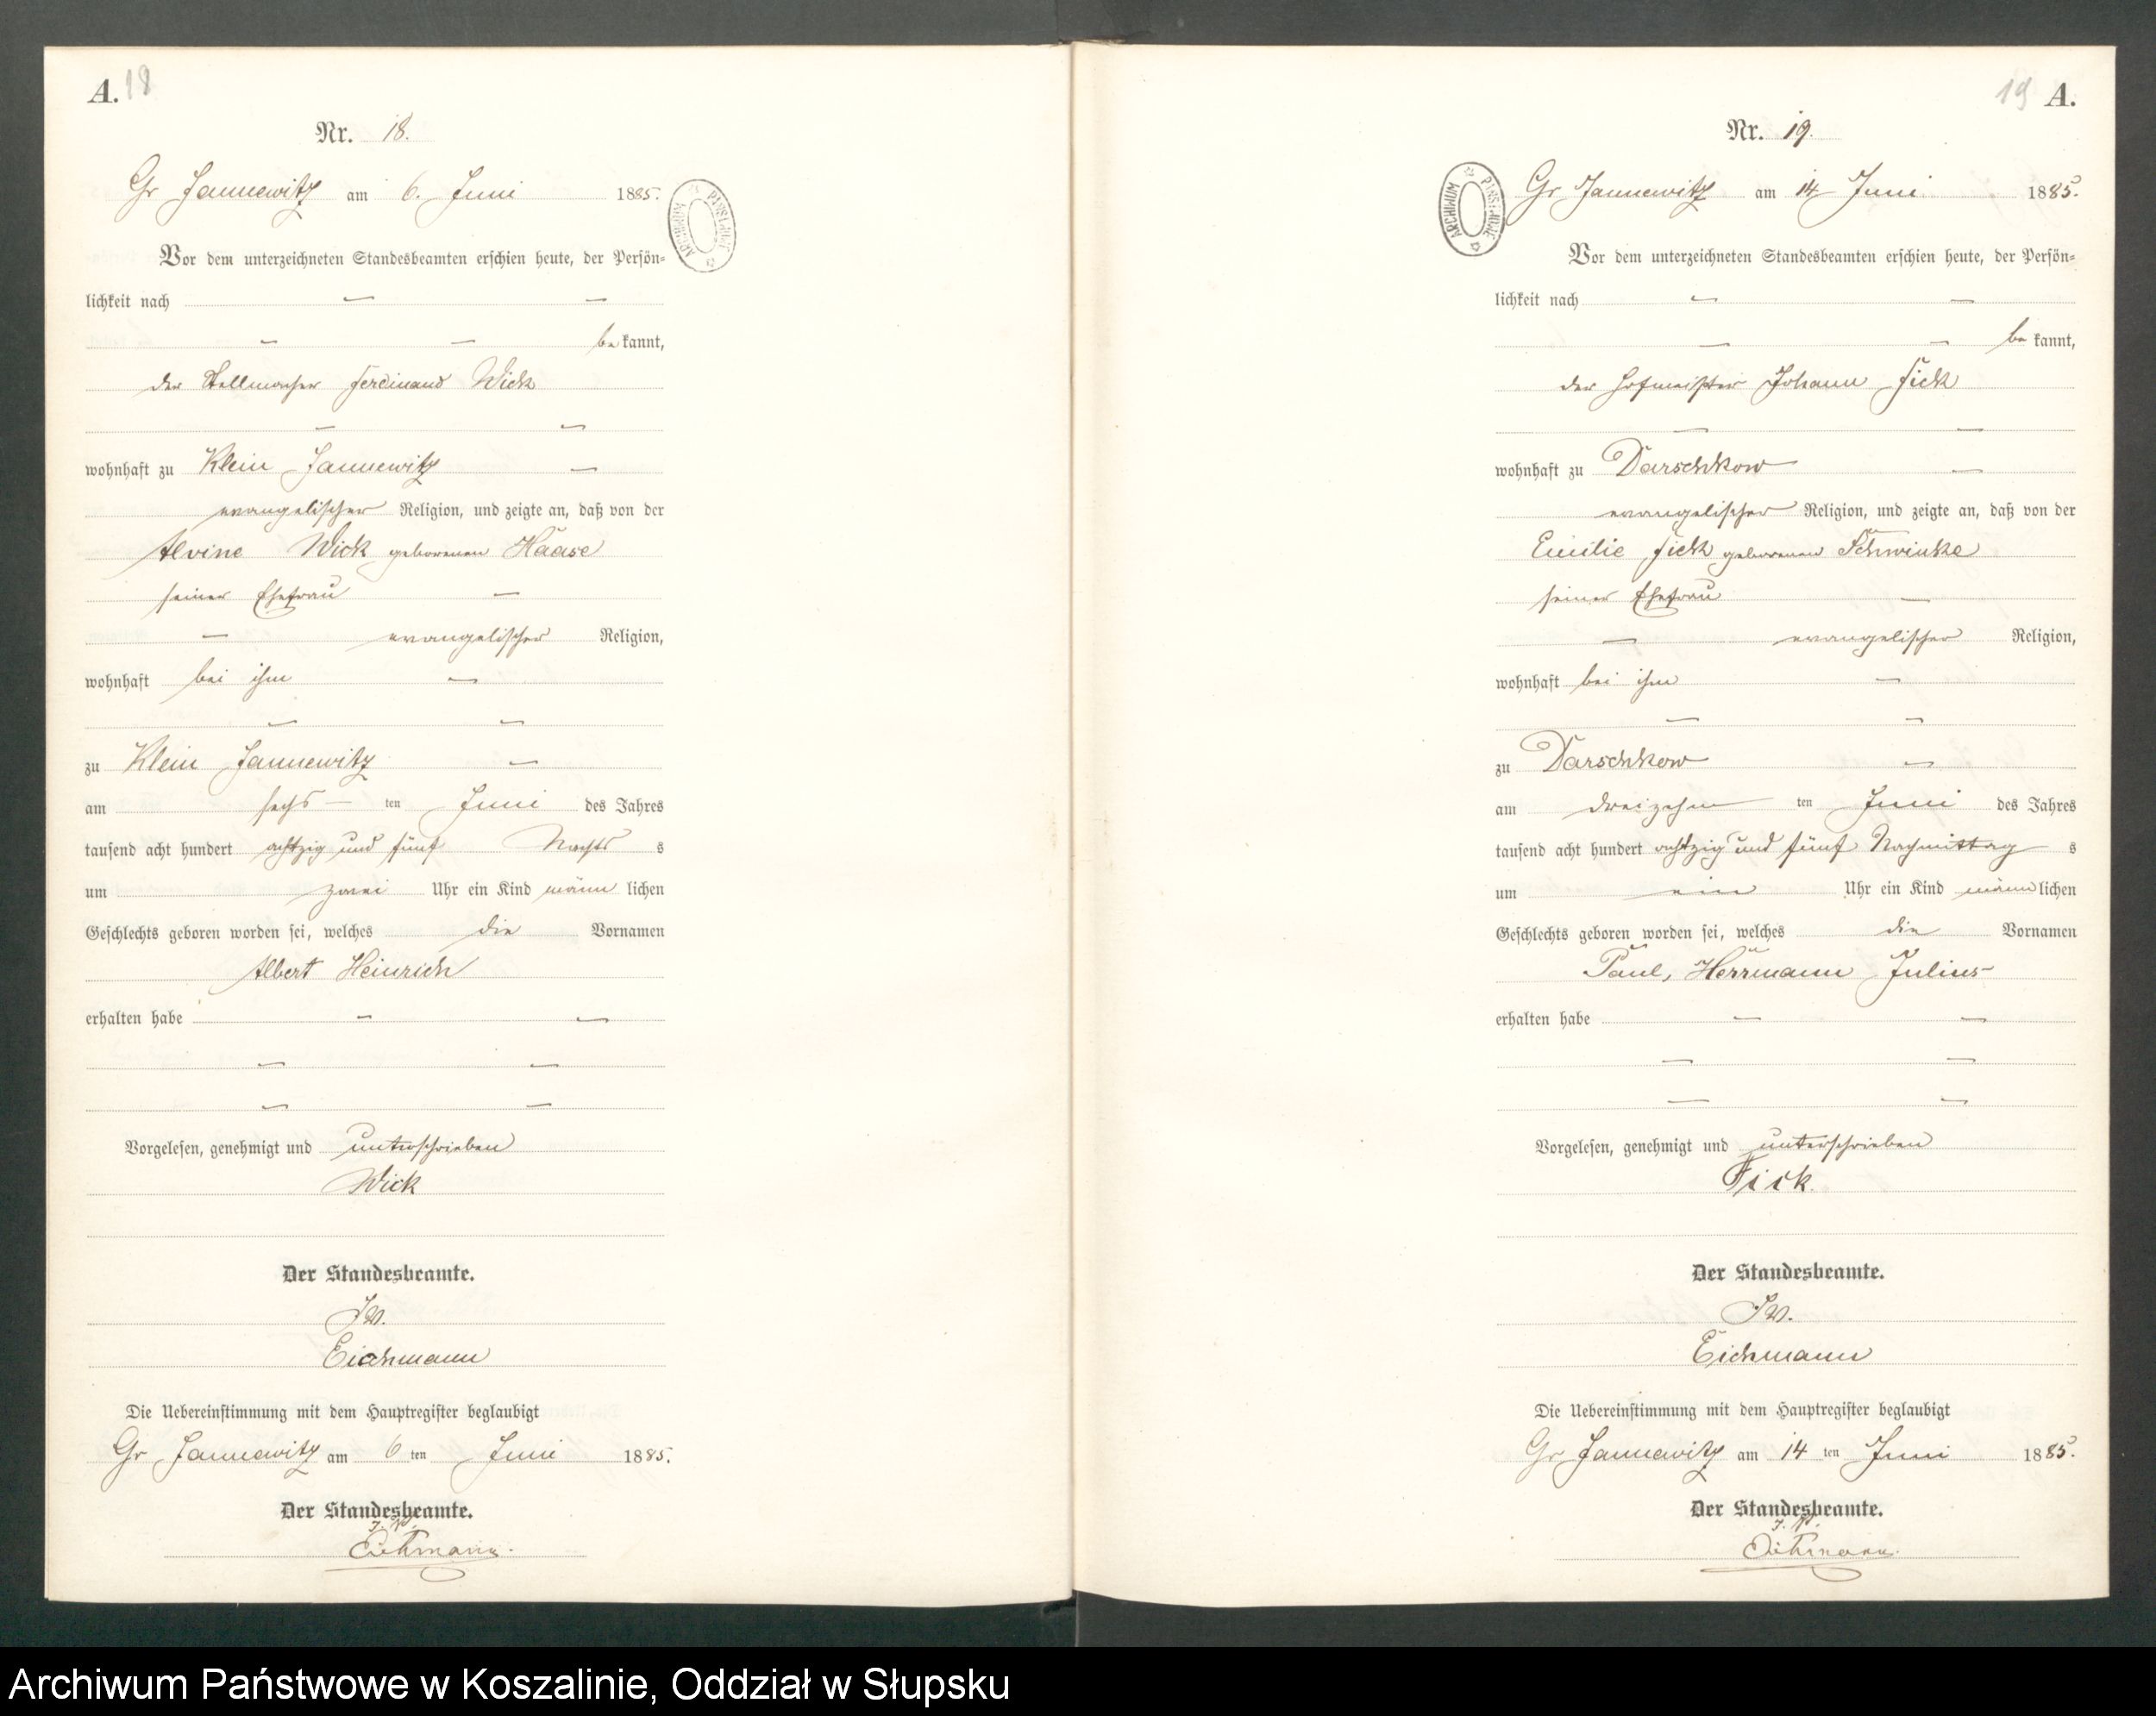 A. 18
Nr. 18.
Gr Jannewitz am 6. Juni 1885.
ARCHIWUM PAŃSTWOWE
Vor dem unterzeichneten Standesbeamten erschien heute, der Persön-
lichkeit nach — —
— — be kannt,
der Stellmacher Ferdinand Wick
— —
wohnhaft zu Klein Jannewitz —
evangelischer Religion, und zeigte an, daß von der
Alvine Wick geborenen Haase
seiner Ehefrau —
— evangelischer Religion,
wohnhaft bei ihm —
— —
zu Klein Jannewitz —
am sechs — ten Juni des Jahres
tausend acht hundert achtzig und fünf Nachts s
um zwei Uhr ein Kind männ lichen
Geschlechts geboren worden sei, welches die Vornamen
Albert Heinrich
erhalten habe — —
— —
— —
Vorgelesen, genehmigt und unterschrieben
Wick
Der Standesbeamte.
I.V.
Eichmann
Die Uebereinstimmung mit dem Hauptregister beglaubigt
Gr Jannewitz am 6 ten Juni 1885.
Der Standesbeamte.
I. V.
Eichmann.
19 A.
Nr. 19.
Gr Jannewitz am 14 Juni 1885.
ARCHIWUM PAŃSTWOWE
Vor dem unterzeichneten Standesbeamten erschien heute, der Persön-
lichkeit nach — —
— — be kannt,
der Hofmeister Johann Fick
— —
wohnhaft zu Darschkow —
evangelischer Religion, und zeigte an, daß von der
Emilie Fick geborenen Schwinke
seiner Ehefrau —
— evangelischer Religion,
wohnhaft bei ihm —
— —
zu Darschkow —
am dreizehn ten Juni des Jahres
tausend acht hundert achtzig und fünf Nachmittag s
um ein Uhr ein Kind männ lichen
Geschlechts geboren worden sei, welches die Vornamen
Paul, Herrmann Julius
erhalten habe — —
— —
— —
Vorgelesen, genehmigt und unterschrieben
Fick.
Der Standesbeamte.
I.V.
Eichmann
Die Uebereinstimmung mit dem Hauptregister beglaubigt
Gr Jannewitz am 14 ten Juni 1885.
Der Standesbeamte.
I. V.
Eichmann.
Archiwum Państwowe w Koszalinie, Oddział w Słupsku